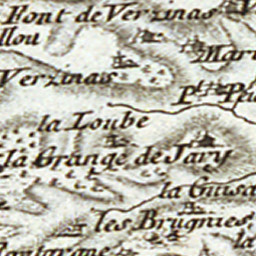 Pont de Verzinas
llou
Mar
Verzinas
la Loube
la Grange de Jary
la Guisa
les Brugnies
la